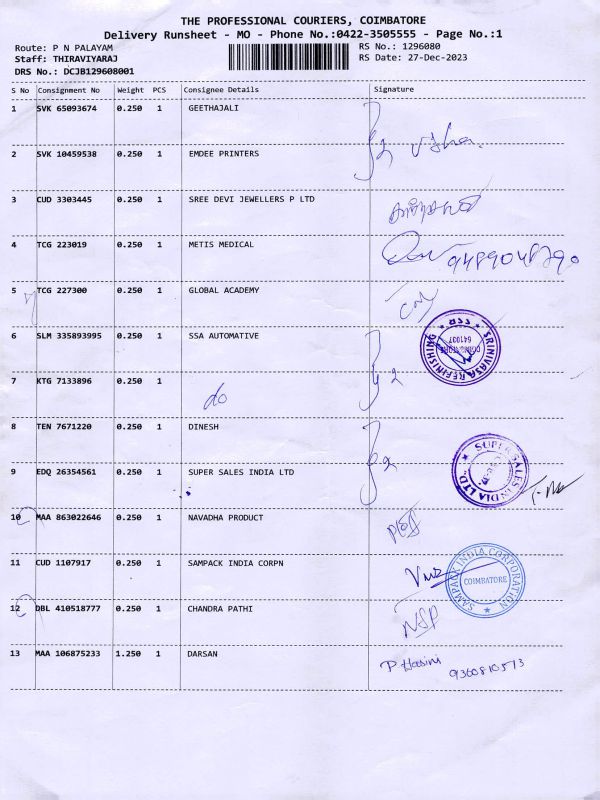 THE PROFESSIONAL COURIERS, COIMBATORE
Delivery Runsheet - MO - Phone No.:0422-3505555 - Page No.:1
Route: P N PALAYAM
RS No.: 1296080
Staff: THIRAVIYARAJ
RS Date: 27-Dec-2023
DRS No.: DCJB129608001
S No Consignment No Weight PCS Consignee Details Signature
1 SVK 65093674 0.250 1 GEETHAJALI
2 SVK 10459538 0.250 1 EMDEE PRINTERS
3 CUD 3303445 0.250 1 SREE DEVI JEWELLERS P LTD
4 TCG 223019 0.250 1 METIS MEDICAL
9489048790
5 TCG 227300 0.250 1 GLOBAL ACADEMY
6 SLM 335893995 0.250 1 SSA AUTOMATIVE
SRINIVASA REFINISHING
COIMBATORE
641037
7 KTG 7133896 0.250 1 do
8 TEN 7671220 0.250 1 DINESH
9 EDQ 26354561 0.250 1 SUPER SALES INDIA LTD
SUPER SALES INDIA LTD
10 MAA 863022646 0.250 1 NAVADHA PRODUCT
11 CUD 1107917 0.250 1 SAMPACK INDIA CORPN
SAMPACK INDIA CORPORATION
COIMBATORE
12 DBL 410518777 0.250 1 CHANDRA PATHI
NSP
13 MAA 106875233 1.250 1 DARSAN
P. Hasini 9360810573